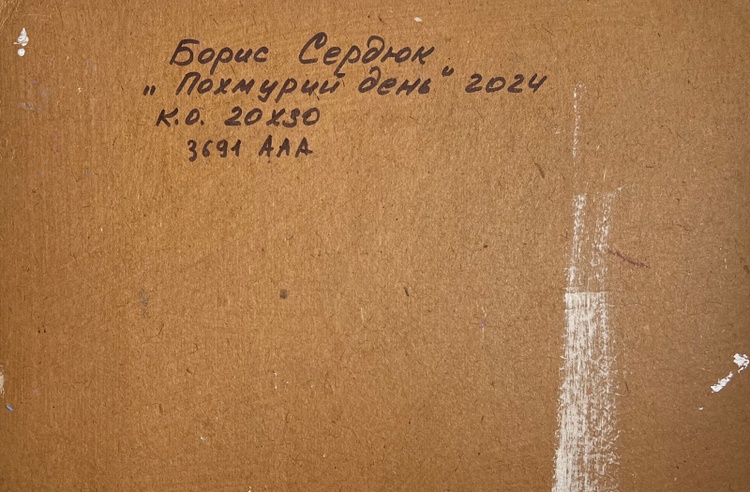 Борис Сердюк
„Похмурий день" 2024
К.О. 20х30
3691 ААА